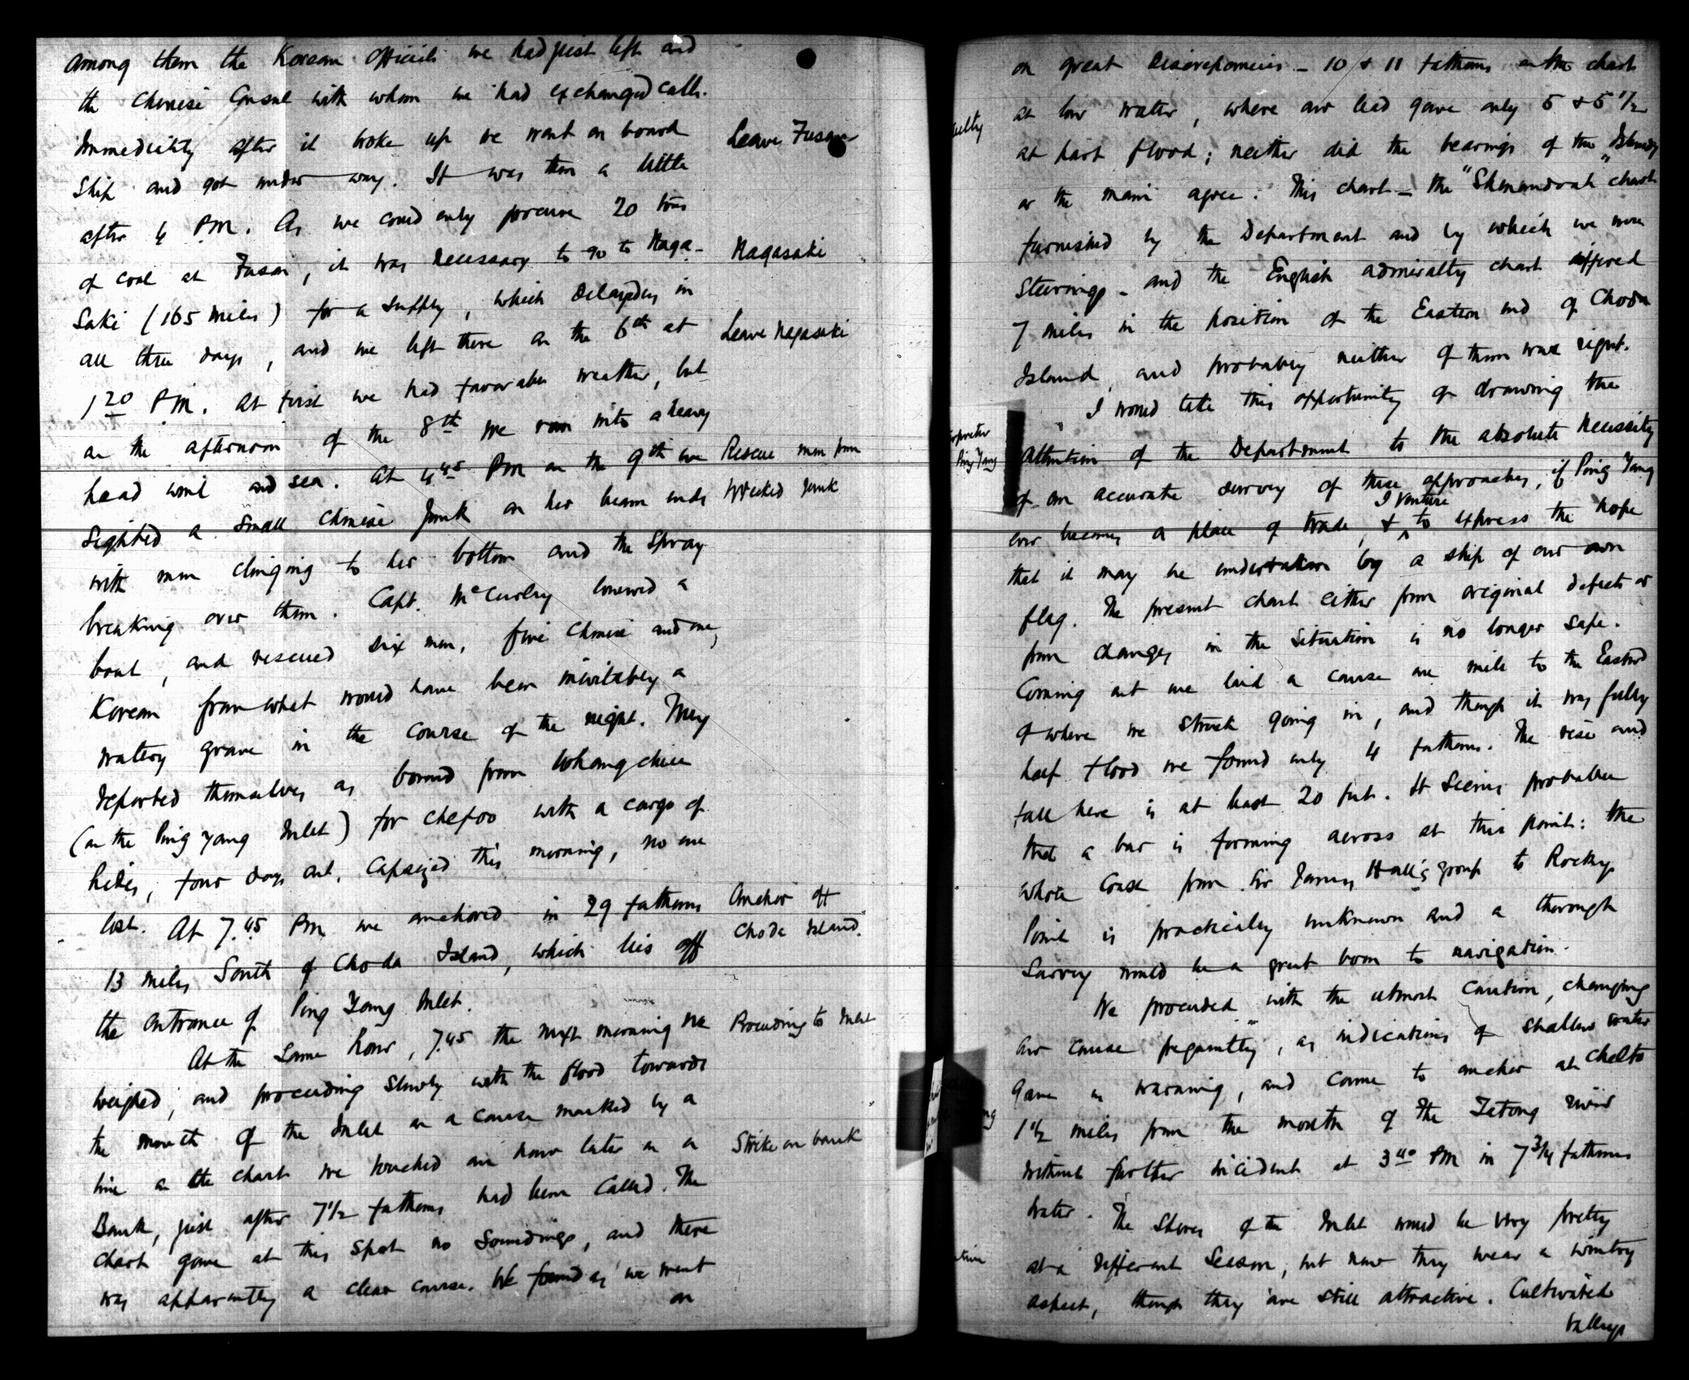 among them the Korean officials we had just left and
the Chinese Consul with whom we had exchanged calls.
Immediately after it broke up we went on board
Ship and got under way. It was then a little
after 4 PM. As we could only procure 20 tons
of coal at Fusan, it was necessary to go to Naga-
saki (165 miles) for a supply, which delayed us in
all three days, and we left there on the 6th at
1 20 PM. At first we had favorable weather, but
on the afternoon of the 8th we ran into a heavy
head wind and sea. At 4 45 PM on the 9th we
sighted a small Chinese Junk on her beam ends
with men clinging to her bottom and the Spray
breaking over them. Capt. McCurley lowered a
boat, and rescued six men, five Chinese and one,
Korean from what would have been inevitably a
watery grave in the course of the night. They
reported themselves as bound from
(on the Ping Yang Inlet) for Chefoo with a cargo of
hides, four days out, capsized this morning, no one
lost. At 7.45 PM we anchored in 29 fathoms
13 miles South of Choda Island, which lies off
the entrance of Ping Yang Inlet.
At the same hour, 7.45 the next morning we
weighed, and proceeding slowly with the flood towards
the mouth of the Inlet on a course marked by a
line on the chart we touched an hour later on a
Bank, just after 7 1/2 fathoms had been called. The
chart gave at this spot no soundings, and there
was apparently a clear course. We found as we went
on
Leave Fusan
Nagasaki
Leave Nagasaki
Rescue men from
Wrecked Junk
Anchor off
Choda Island.
Proceeding to Inlet
Strike on bank
on great discrepancies - 10 & 11 fathoms on the chart
at low water, where our lead gave only 5 & 5 1/2
at half flood; neither did the bearings of the Islands
or the main agree. This chart - the "Shenandoah" chart
furnished by the Department and by which we were
steering - and the English admiralty chart differed
7 miles in the position of the Eastern end of Choda
Island, and probably neither of them was right.
I would take this opportunity of drawing the
attention of the Department to the absolute necessity
of an accurate survey of these approaches, if Ping Yang
ever becomes a place of trade, & I venture to express the hope
that it may be undertaken by a ship of our own
flag. The present chart either from original defects or
from changes in the situation is no longer safe.
Coming out we laid a course one mile to the Eastwd
of where we struck going in, and though it was fully
half flood we found only 4 fathoms. The rise and
fall here is at least 20 feet. It seems probable
that a bar is forming across at this point: the
whole coast from Sir James Hall's group to Rocky
Point is practically unknown and a thorough
survey would be a great boon to navigation.
We proceeded with the utmost caution, changing
our course frequently, as indications of shallow water
gave us warning, and came to anchor at
1 1/2 miles from the mouth of the Tatong river
without further incident at 3 40 PM in 7 3/4 fathoms
water. The shores of the Inlet would be very pretty
at a different season, but now they wear a wintry
aspect, though they are still attractive. Cultivated
valleys